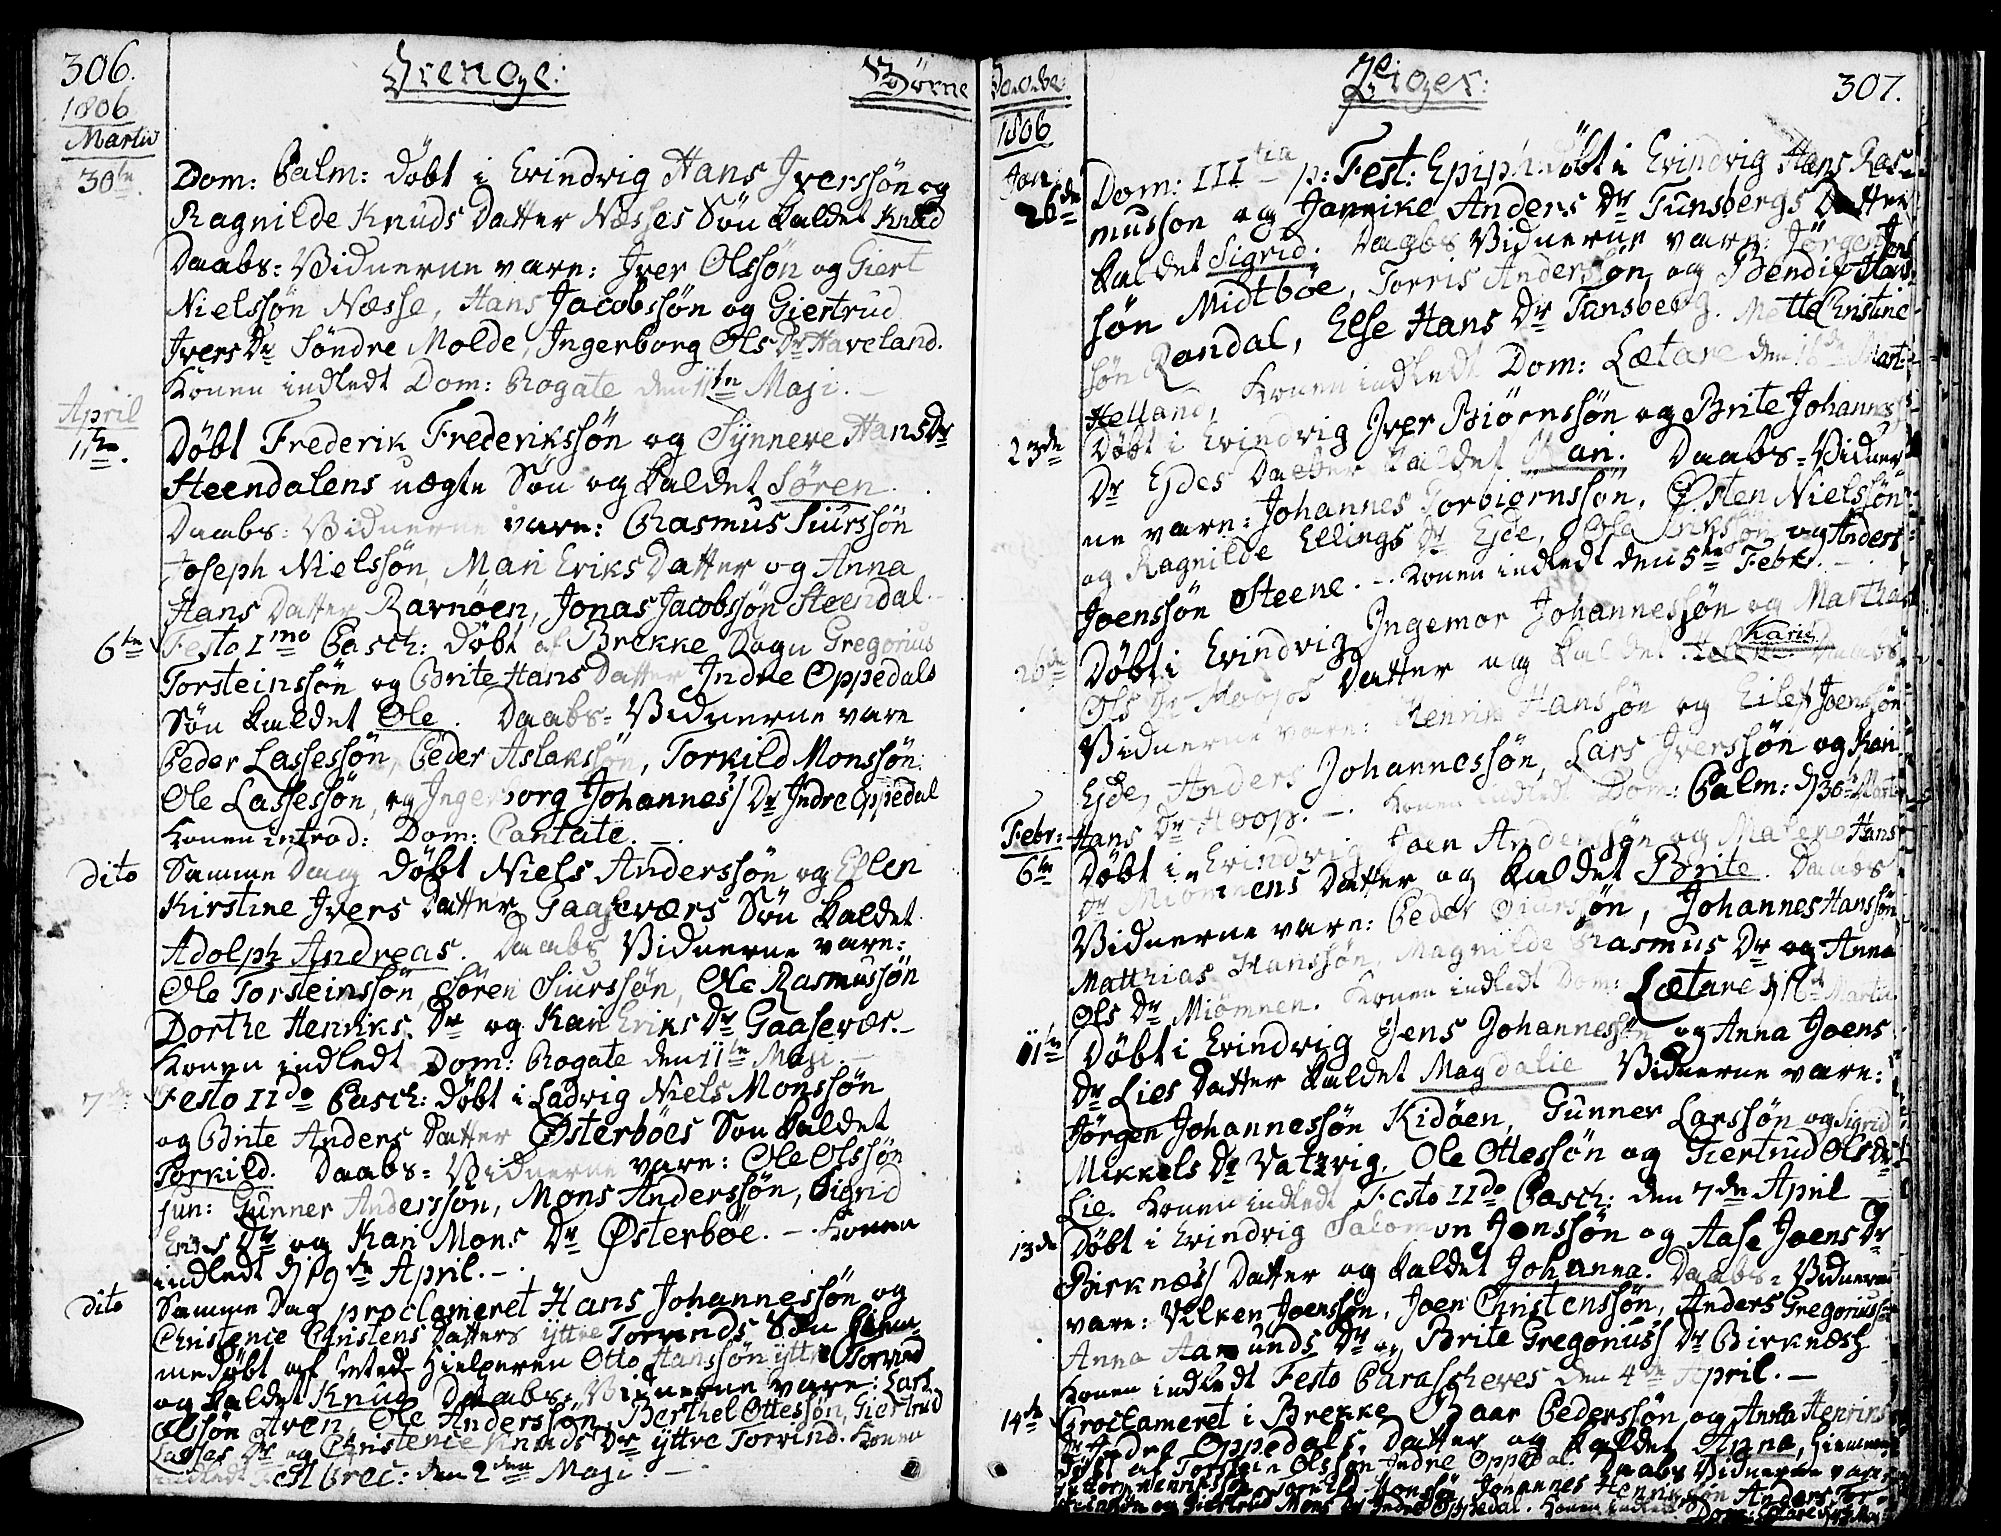 306.
Drenge:
Börne
1806
Martii
30te
Dom: Palm: döbt i Evindvig Hans Iverssön og
Ragnilde Knuds Datter Næsses Sön kaldet Knud
Daabs-Vidnerne vare: Iver Olssön og Giert
Nielssön Næsse, Hans Jacobssön og Giertrud
Ivers Dr Söndre Molde, Ingerborg Ols Dr Haveland.
Konen indledt Dom: Rogate den 11te Maji.
April
1te
Döbt Frederik Frederikssön og Synneve Hans Dr
Steendalens uægte Sön og kaldet Sören.
Daabs-Vidnerne vare: Rasmus Siurssön
Joseph Nielssön, Mari Eriks Datter og Anna
Hans Datter Ravnöen, Jonas Jacobssön Steendal.
6te
Festo Imo Pasch: döbt af Brekke Sogn Gregorius
Torsteinssön og Brite Hans Datter Indre Oppedals
Sön kaldet Ole. Daabs-Vidnerne vare
Peder Lassessön, Peder Aslakssön, Torkild Monssön
Ole Lassessön, og Ingerborg Johannes Dr Indre Oppedal
Konen introd: Dom: Cantate.
dito
Samme Dag döbt Niels Anderssön og Ellen
Kirstine Ivers Datter Gaaseværs Sön kaldet
Adolph Andreas. Daabs Vidnerne vare:
Ole Torsteinssön, Sören Siurssön, Ole Rasmussön
Dorthe Henriks Dr og Kari Eriks Dr Gaasevær.
Konen indledt Dom: Rogate den 11te Maji.
7de
Festo IIdo Pasch: döbt i Ladvig Niels Monssön
og Brite Anders Datter Österböes Sön kaldet
Torkild. Daabs-Vidnerne vare: Ole Olssön
jun: Gunner Anderssön, Mons Anderssön, Sigrid
Eriks Dr og Kari Mons Dr Österböe. - Konen
indledt d 19de April.
dito
Samme Dag proclameret Hans Johannessön og
Christence Christens Datters yttre Torvinds Sön hjem-
medöbt af Meed-Hjelperen Otto Hanssön yttre Torvind
og kaldet Knud. Daabs-Vidnerne vare: Lars
Olssön Aven, Ole Anderssön, Berthel Ottessön, Giertrud
Lasses Dr og Christence Knuds Dr yttre Torvind. Konen
indledt Fest Prec: den 2den Maji.
Daabe:
Piger:
307.
1806
Jan:
26de
Dom: IIItia p: Fest: Epiph: döbt i Evindvig Hans Ras-
musson og Jannike Anders Dr Tunsbergs Datter
kaldet Sigrid. Daabs Vidnerne vare: Jörgen Jens
sön Midtböe, Torris Anderssön, og Bendix Hans
sön Randal, Else Hans Dr Tansberg. Mette Christine
Helland, Konen indledt Dom: Lætare den 16de Mart:
23de
Döbt i Evindvig Iver Biörnssön og Brite Johannes
Dr Eides Datter kaldet Kari. Daabs-Vidner
ne vare: Johannes Torbiörnssön, Östen Nielssön
og Ragnilde Ellings Dr Eide, Ole Erikssön og Anders
Joenssön Steene. - Konen indledt den 5te Febr.
26de
Döbt i Evindvig Ingemor Johannessön og Martha
Ols Dr Hoops Datter og kaldet Karie Daabs
Vidnerne vare: Henrik Hanssön og Eilef Joenssön
Eide, Anders Johannessön, Lars Iverssön og Kari
Hans Dr Hoop. - Konen indledt Dom: Palm: d 30te Martii
Febr:
6te
Döbt i Evindvig Joen Anderssön og Malene Hans
Dr Miömnens Datter og kaldet Brite. Daabs
Vidnerne vare: Peder Siurssön, Johannes Hanssön
Matthias Hanssön, Magnilde Rasmus Dr og Anna
Ols Dr Miömnen. Konen indledt Dom: Lætare d 16de Martii
11te
Döbt i Evindvig Jens Johannessön og Anna Joens
Dr Lies Datter kaldet Magdalie Vidnerne vare:
Jörgen Johannessön Kidöen, Gunner Larssön og Sigrid
Mikkels Dr Vatzvig, Ole Ottessön og Giertrud Ols Dr
Lie. Konen indledt Festo IIdo Pasch: den 7de April
13de
Döbt i Evindvig Salomon Jonssön og Aase Joens Dr
Birknæs Datter og kaldet Johanna. Daabs-Vidnerne
vare: Velken Joenssön, Joen Christenssön, Anders Gregoriussön
Anna Aamunds Dr og Brite Gregorius Dr Birknæs
Konen indledt Festo Parascheves den 4de April.
14de
Proclameret i Brekke Baar Pederssön og Anna Henriks
Dr Indre Oppedals Datter og kaldet Anna, hiemme
döbt af Torstein Olssön Indre Oppedal. Daabs Vidnerne vare